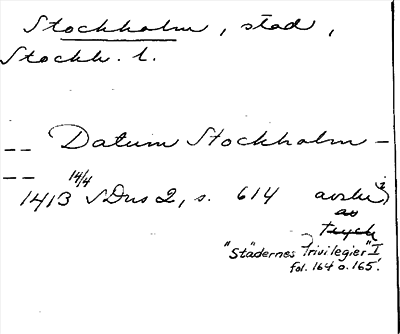 Stockholm, stad,
Stockh. l.
-- Datum Stockholm -
--
14/4
1413 SDns 2, s. 614 avskr. i
av
tryck
"Städernes Privilegier" I
fol. 164 o. 165.